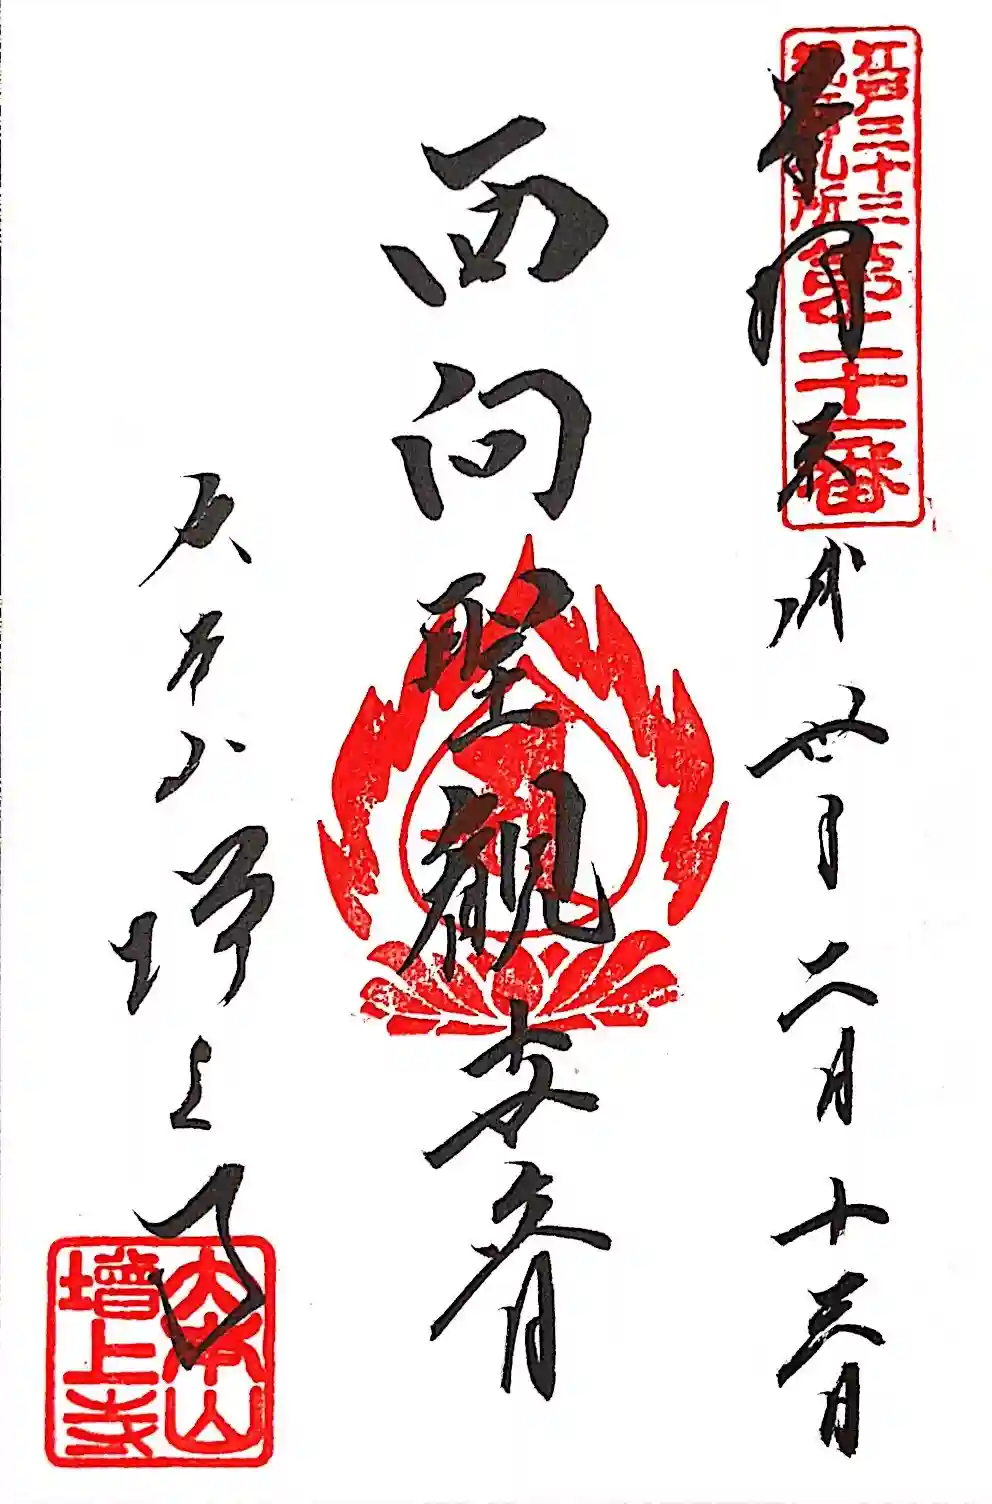 奉拝
平成廿年二月十三日
江戸三十三
観音札所
第二十一番
西向聖観世音
大本山増上寺
大本山
増上寺